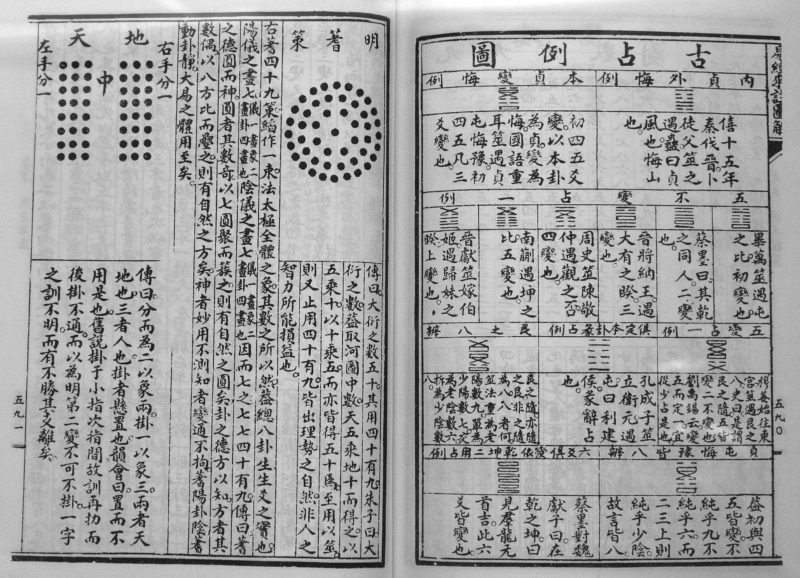 易經來註圖解
古占例圖
內貞外悔例
僖十五年
秦伐晉卜
徒父筮之
遇蠱曰貞
風也悔山
也
本貞變悔例
初四五爻
變以本卦
為貞變為
悔國語重
耳筮遇貞
屯悔豫初
四五凡三
爻變也
五不變占一例
畢萬筮遇屯
之比初變也
蔡墨曰其乾
之同人二變
晉將納王遇
大有之睽三
變也
周史筮陳敬
仲遇觀之否
四變也
南蒯遇坤之
比五變也
晉獻筮嫁伯
姬遇歸妹之
睽上變也
五變占一例
穆姜始往東
宮筮遇艮之
八史曰是謂
艮之隨五皆
變二不變也
劉禹錫云變
五而定一宜
從少占是也
俱定本卦彖占例
孔成子筮
立衛元遇
屯曰利建
侯彖辭占
也
艮之八辨
艮之隨亦隨
之艮非之隨
為八八者何
筮法重為老
陽數九單為
少陽數七交
為老陰數六
拆為少陰數
八
貞屯悔豫皆八辨
益初與四
五皆變不
純乎九不
純乎六而
二三上則
純乎少陰
故言皆八
六爻俱變依乾坤二用占例
蔡墨對魏
獻子曰在
乾之坤曰
見羣龍无
首吉此六
爻皆變也
五九〇
明蓍策
傳曰大衍之數五十其用四十有九朱子曰大
衍之數蓋取河圖中數天五乘地十而得之以
五乘十以十乘五而亦皆得五十焉至用以筮
則又止用四十有九皆出理勢之自然非人之
智力所能損益也
右蓍四十九策縚作一束法太極全體之象其數之所以然蓋總八卦生生爻之實也
陽儀之畫七儀一畫象二卦四畫也陰儀之畫七儀一畫象二卦四畫也因而七之七七四十有九傳曰蓍
之德圓而神圓者其數奇以七圓聚而蔟之則有自然之圓矣卦之德方以知方者其
數偶以八方比而疊之則有自然之方矣神者妙用不測知者變通不拘蓍陽卦陰蓍
動卦靜大易之體用至矣
右手分一
地
中
天
左手分一
傳曰分而為二以象兩掛一以象三兩者天
地也三者人也掛者懸置也韻會曰置而不
用是也舊說掛于小指次指間故訓再扐而
後掛不通而以為明第二變不可不掛一字
之訓不明而有不勝其支離矣
五九一